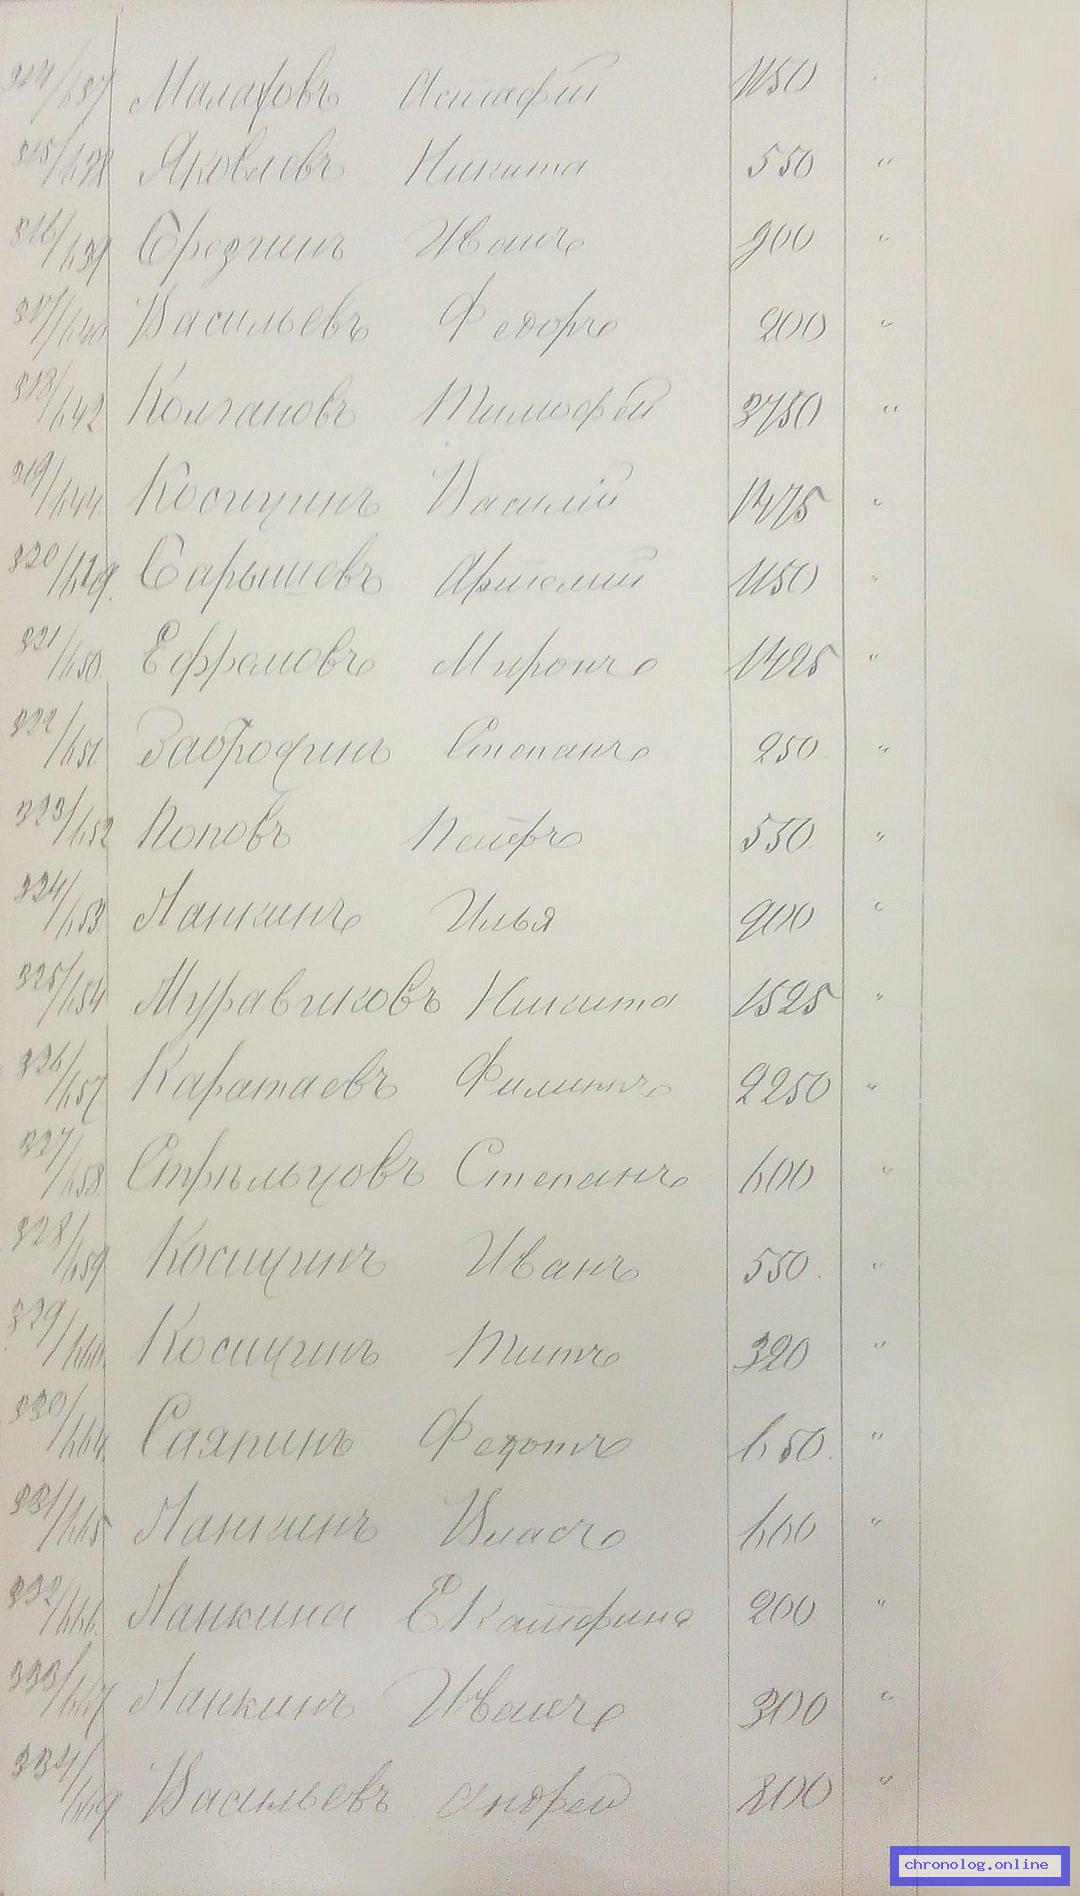 314/637 Малаховъ Астафій 1150 "
315/638 Яковлевъ Никита 550 "
316/639 Срезгинъ Иванъ 900 "
317/640 Васильевъ Федоръ 200 "
318/642 Колгановъ Тимофей 3750 "
319/644 Косицинъ Василій 1475 "
320/649 Сарышевъ Артемій 1150 "
321/650 Ефремовъ Миронъ 1425 "
322/651 Забродинъ Степанъ 250 "
323/652 Поповъ Петръ 550 "
324/653 Панкинъ Илья 900 "
325/654 Муравиковъ Никита 1525 "
326/657 Каратаевъ Филиппъ 2250 "
327/658 Стрѣльцовъ Степанъ 600 "
328/659 Косицинъ Иванъ 550 "
329/660 Косицинъ Титъ 320 "
330/664 Саяпинъ Федотъ 650 "
331/665 Ланкинъ Власъ 600 "
332/666 Ланкина Екатерина 200 "
333/667 Ланкинъ Иванъ 300 "
334/669 Васильевъ Андрей 200 "
chronolog.online